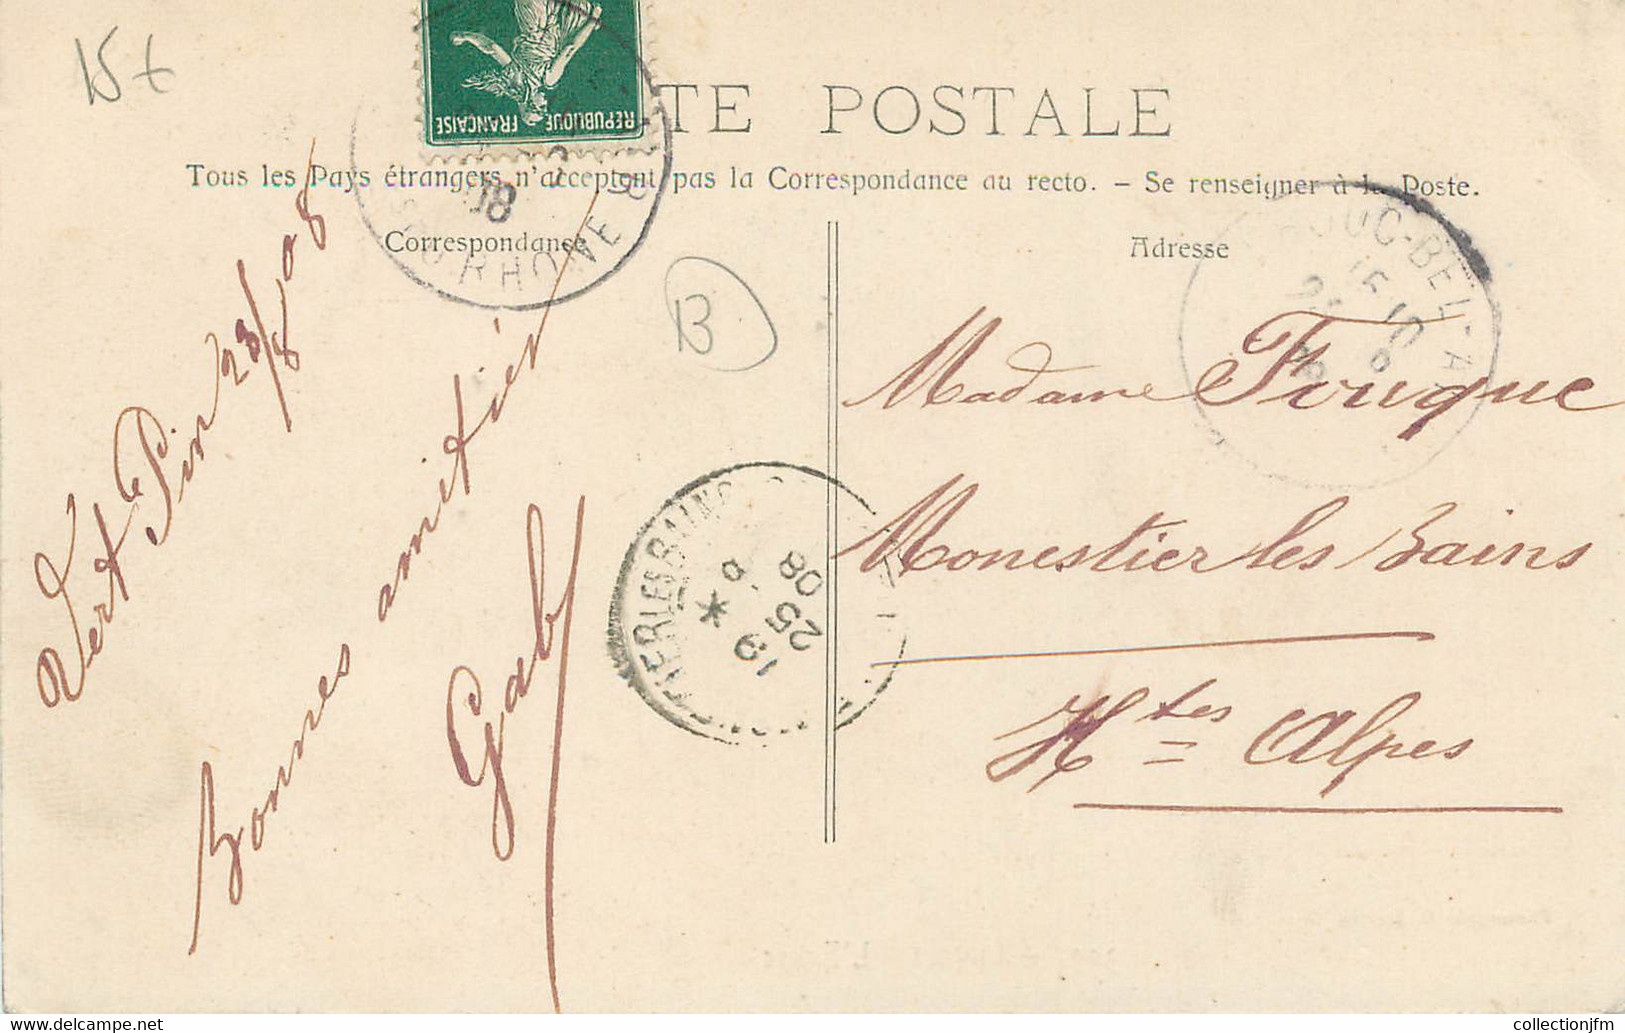 15€
RÉPUBLIQUE FRANÇAISE
TE POSTALE
Tous les Pays étrangers n'acceptent pas la Correspondance au recto. – Se renseigner à la Poste.
Correspondance
Adresse
B
Vert le Pin 23/8/08
Bonnes amitiés
Gab
Madame Fouque
Monestier les Bains
Htes Alpes
OUC-BEL-A
08
DU RHONE
TIER LES BAINS
19
25
08
© collectionjfm
www.delcampe.net